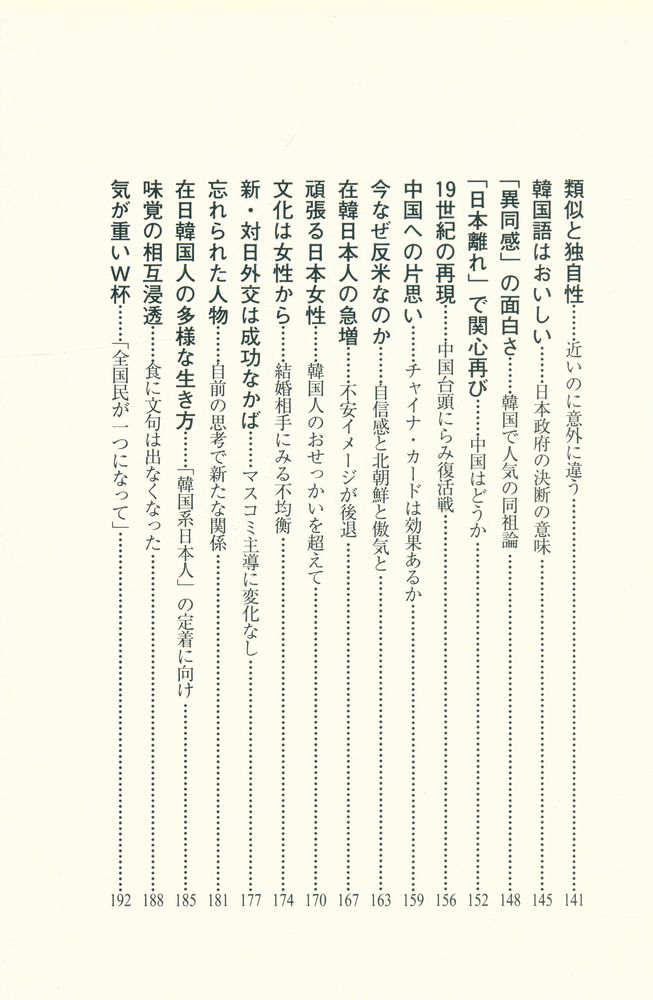 類似と独自性……近いのに意外に違う……141
韓国語はおいしい……日本政府の決断の意味……145
「異同感」の面白さ……韓国で人気の同祖論……148
「日本離れ」で関心再び……中国はどうか……152
19世紀の再現……中国台頭にらみ復活戦……156
中国への片思い……チャイナ・カードは効果あるか……159
今なぜ反米なのか……自信感と北朝鮮と傲気と……163
在韓日本人の急増……不安イメージが後退……167
頑張る日本女性……韓国人のおせっかいを超えて……170
文化は女性から……結婚相手にみる不均衡……174
新・対日外交は成功なかば……マスコミ主導に変化なし……177
忘れられた人物……自前の思考で新たな関係……181
在日韓国人の多様な生き方……「韓国系日本人」の定着に向け……185
味覚の相互浸透……食に文句は出なくなった……188
気が重いW杯……「全国民が一つになって」……192